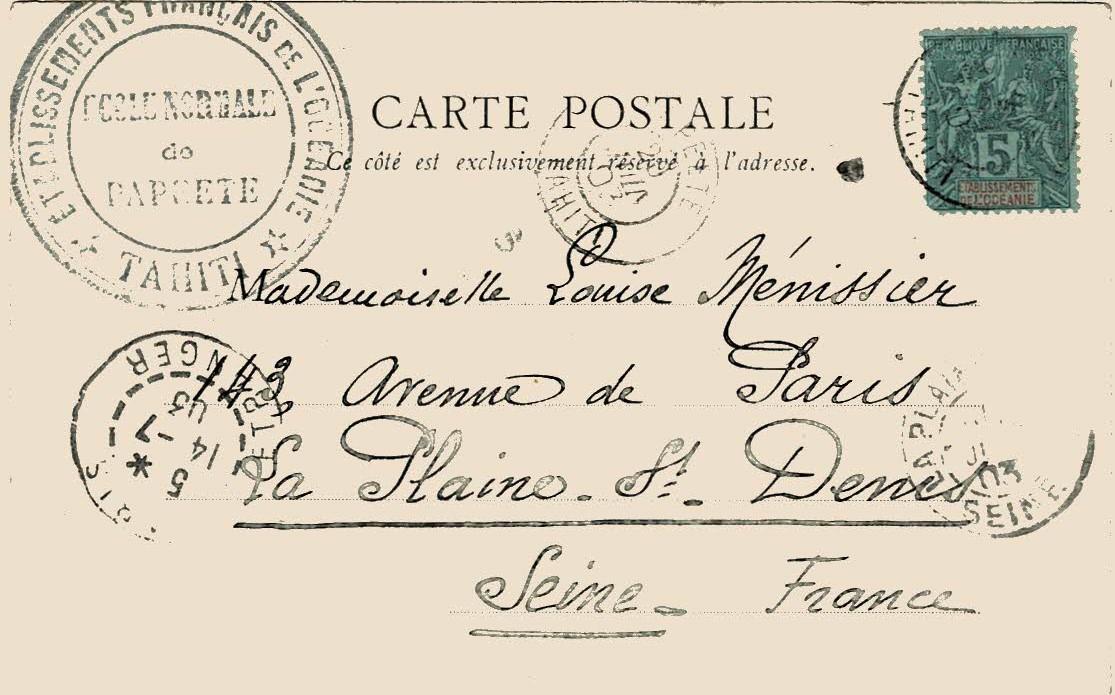 ETABLISSEMENTS FRANÇAIS DE L'OCÉANIE
ECOLE NORMALE
de
PAPEETE
TAHITI
CARTE POSTALE
Ce côté est exclusivement réservé à l'adresse.
REPUBLIQUE FRANÇAISE
5
ETABLISSEMENTS
DE L'OCÉANIE
TAHITI
Mademoiselle Louise Ménissier
143 Avenue de Paris
La Plaine-St-Denis
Seine - France
ETRANGER
5
14 - 7
03
03
SEINE